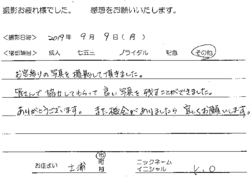 撮影お疲れ様でした。 感想をお願いいたします。
<撮影日時> 2019年 9月 9日(月)
<撮影種類> 成人 七五三 ブライダル その他
お宮参りの写真を撮影して頂きました。
協力してもらって良い写真を残すことができました。
ありがとうございます。また機会がありましたら宜しくお願いします。
お住まい 土浦 市 ニックネーム イニシャル K.O